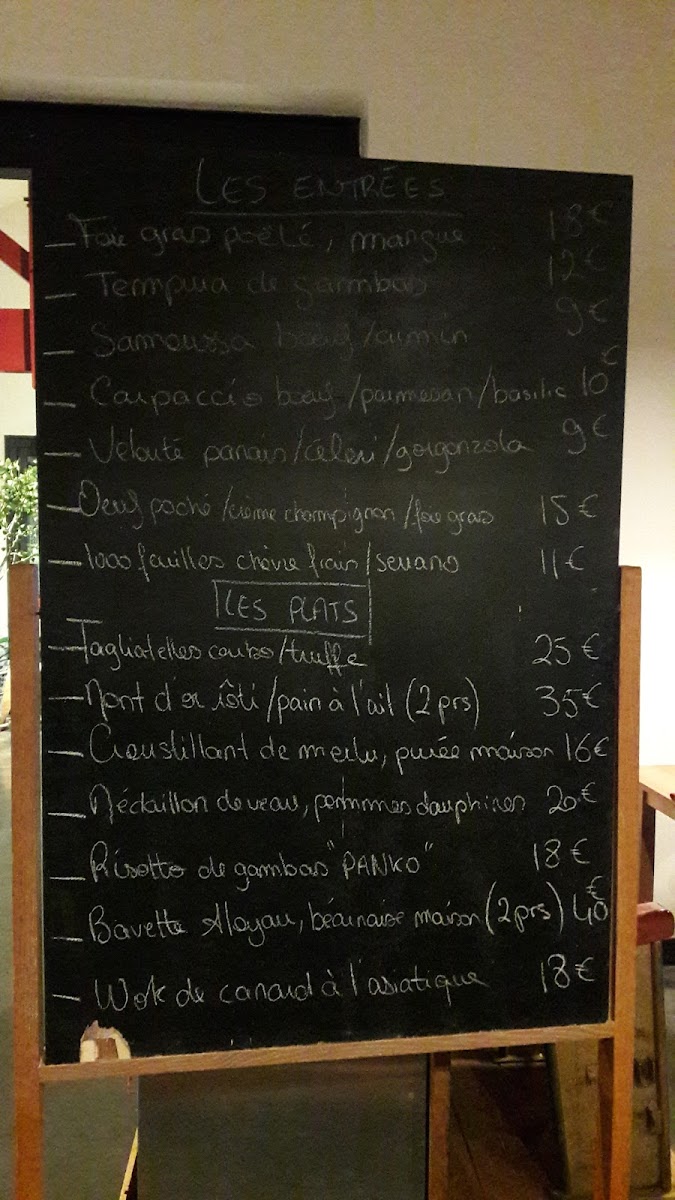 LES ENTRÉES
— Foie gras poêlé, mangue 18€
— Tempura de gambas 12€
— Samoussa boeuf/cumin 9€
— Carpaccio boeuf/parmesan/basilic 10€
— Velouté panais/céleri/gorgonzola 9€
— Oeuf poché/crème champignon/foie gras 15€
— 1000 feuilles chèvre frais/serrano 11€
LES PLATS
— Tagliatelles /truffe 25€
— Mont d'or rôti/pain à l'ail (2prs) 35€
— Croustillant de merlu, purée maison 16€
— Médaillon de veau, pommes dauphines 20€
— Risotto de gambas "PANKO" 18€
— Bavette Aloyau, béarnaise maison (2prs) 40€
— Wok de canard à l'asiatique 18€